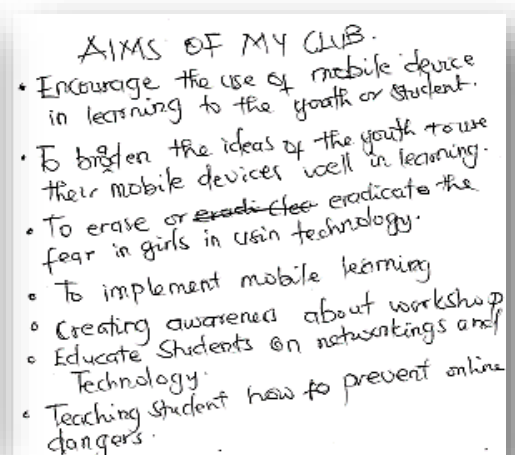 AIMS OF MY CLUB.
• Encourage the use of mobile device
in learning to the youth or student.
• To broden the ideas of the youth to use
their mobile devices well in learning.
• To erase or eradicate the
fear in girls in usin technology.
• To implement mobile learning
• Creating awareness about workshop
• Educate Students on networkings and
Technology.
• Teaching student how to prevent online
dangers.